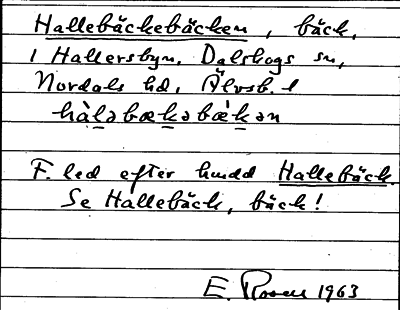 Hallebäckebäcken, bäck,
i Hallersbyn, Dalskogs sn,
Nordals hd, Älvsb. l
hàl̲əbæk̲əbæ̀k̲ən
F. led efter hundd Hallebäck.
Se Hallebäck, bäck!
E. Rosen 1963